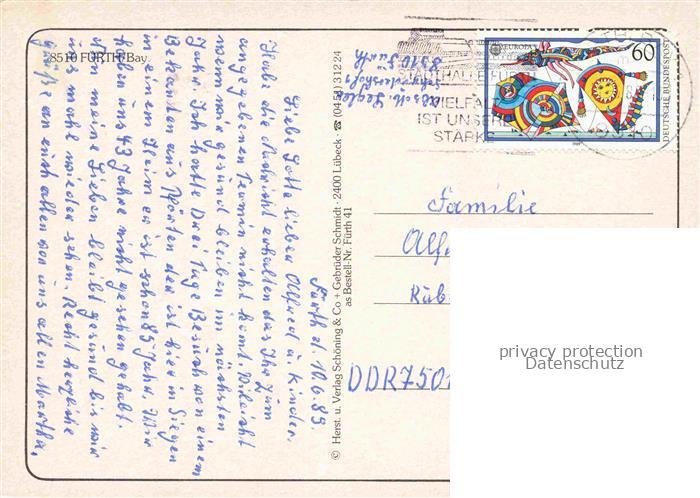 8510 FÜRTH/Bay.
Fürth d. 10.6.89.
Liebe Lotte lieben Alfred u. Kinder.
Habe die Nachricht erhalten das Ihr zum
angegebenen Termin nicht komt. Vileicht
wenn wir gesund bleiben im nächsten
Jahr. Ich hatte Drei Tage Besuch von einem
Bekanten aus Pförten der ist hier in Siegen
in einem Heim er ist schon 85 Jahre. Wir
haben uns 43 Jahre nicht gesehen gehabt.
Meine Lieben bleibt gesund bis wir
uns mahl wieder sehen. Recht herzliche
Grüße an euch allen von uns allen Martha.
© Herst. u. Verlag Schöning & Co + Gebrüder Schmidt · 2400 Lübeck · ☎ (0451) 31224
as Bestell-Nr. Fürth 41
8510 Fürth
VIELFALT
IST UNSERE
STÄRKE
EUROPA
60
DEUTSCHE BUNDESPOST
Familie
Alf
DDR 750
privacy protection
Datenschutz